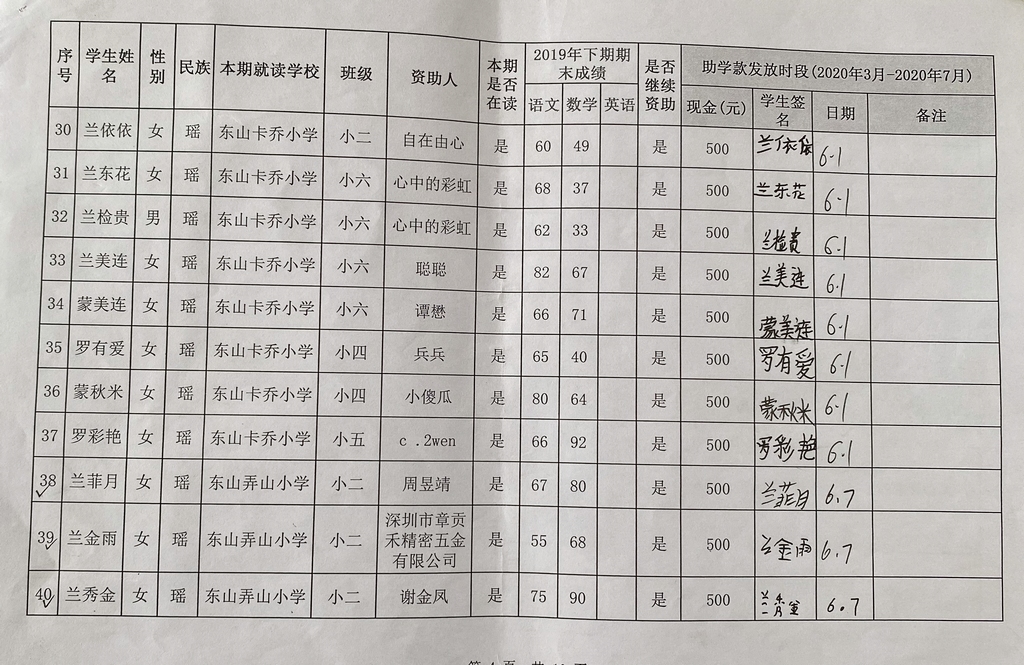 序号 学生姓名 性别 民族 本期就读学校 班级 资助人 本期是否在读 2019年下期期末成绩 是否继续资助 助学款发放时段(2020年3月-2020年7月)
语文 数学 英语 现金(元) 学生签名 日期 备注
30 兰依依 女 瑶 东山卡乔小学 小二 自在由心 是 60 49 是 500 兰依依 6-1
31 兰东花 女 瑶 东山卡乔小学 小六 心中的彩虹 是 68 37 是 500 兰东花 6-1
32 兰检贵 男 瑶 东山卡乔小学 小六 心中的彩虹 是 62 33 是 500 兰检贵 6.1
33 兰美连 女 瑶 东山卡乔小学 小六 聪聪 是 82 67 是 500 兰美连 6.1
34 蒙美连 女 瑶 东山卡乔小学 小六 谭懋 是 66 71 是 500 蒙美连 6-1
35 罗有爱 女 瑶 东山卡乔小学 小四 兵兵 是 65 40 是 500 罗有爱 6-1
36 蒙秋米 女 瑶 东山卡乔小学 小四 小傻瓜 是 80 64 是 500 蒙秋米 6-1
37 罗彩艳 女 瑶 东山卡乔小学 小五 c .2wen 是 66 92 是 500 罗彩艳 6.1
38 兰菲月 女 瑶 东山弄山小学 小二 周昱靖 是 67 80 是 500 兰菲月 6.7
39 兰金雨 女 瑶 东山弄山小学 小二 深圳市章贡禾精密五金有限公司 是 55 68 是 500 兰金雨 6.7
40 兰秀金 女 瑶 东山弄山小学 小二 谢金凤 是 75 90 是 500 兰秀金 6.7